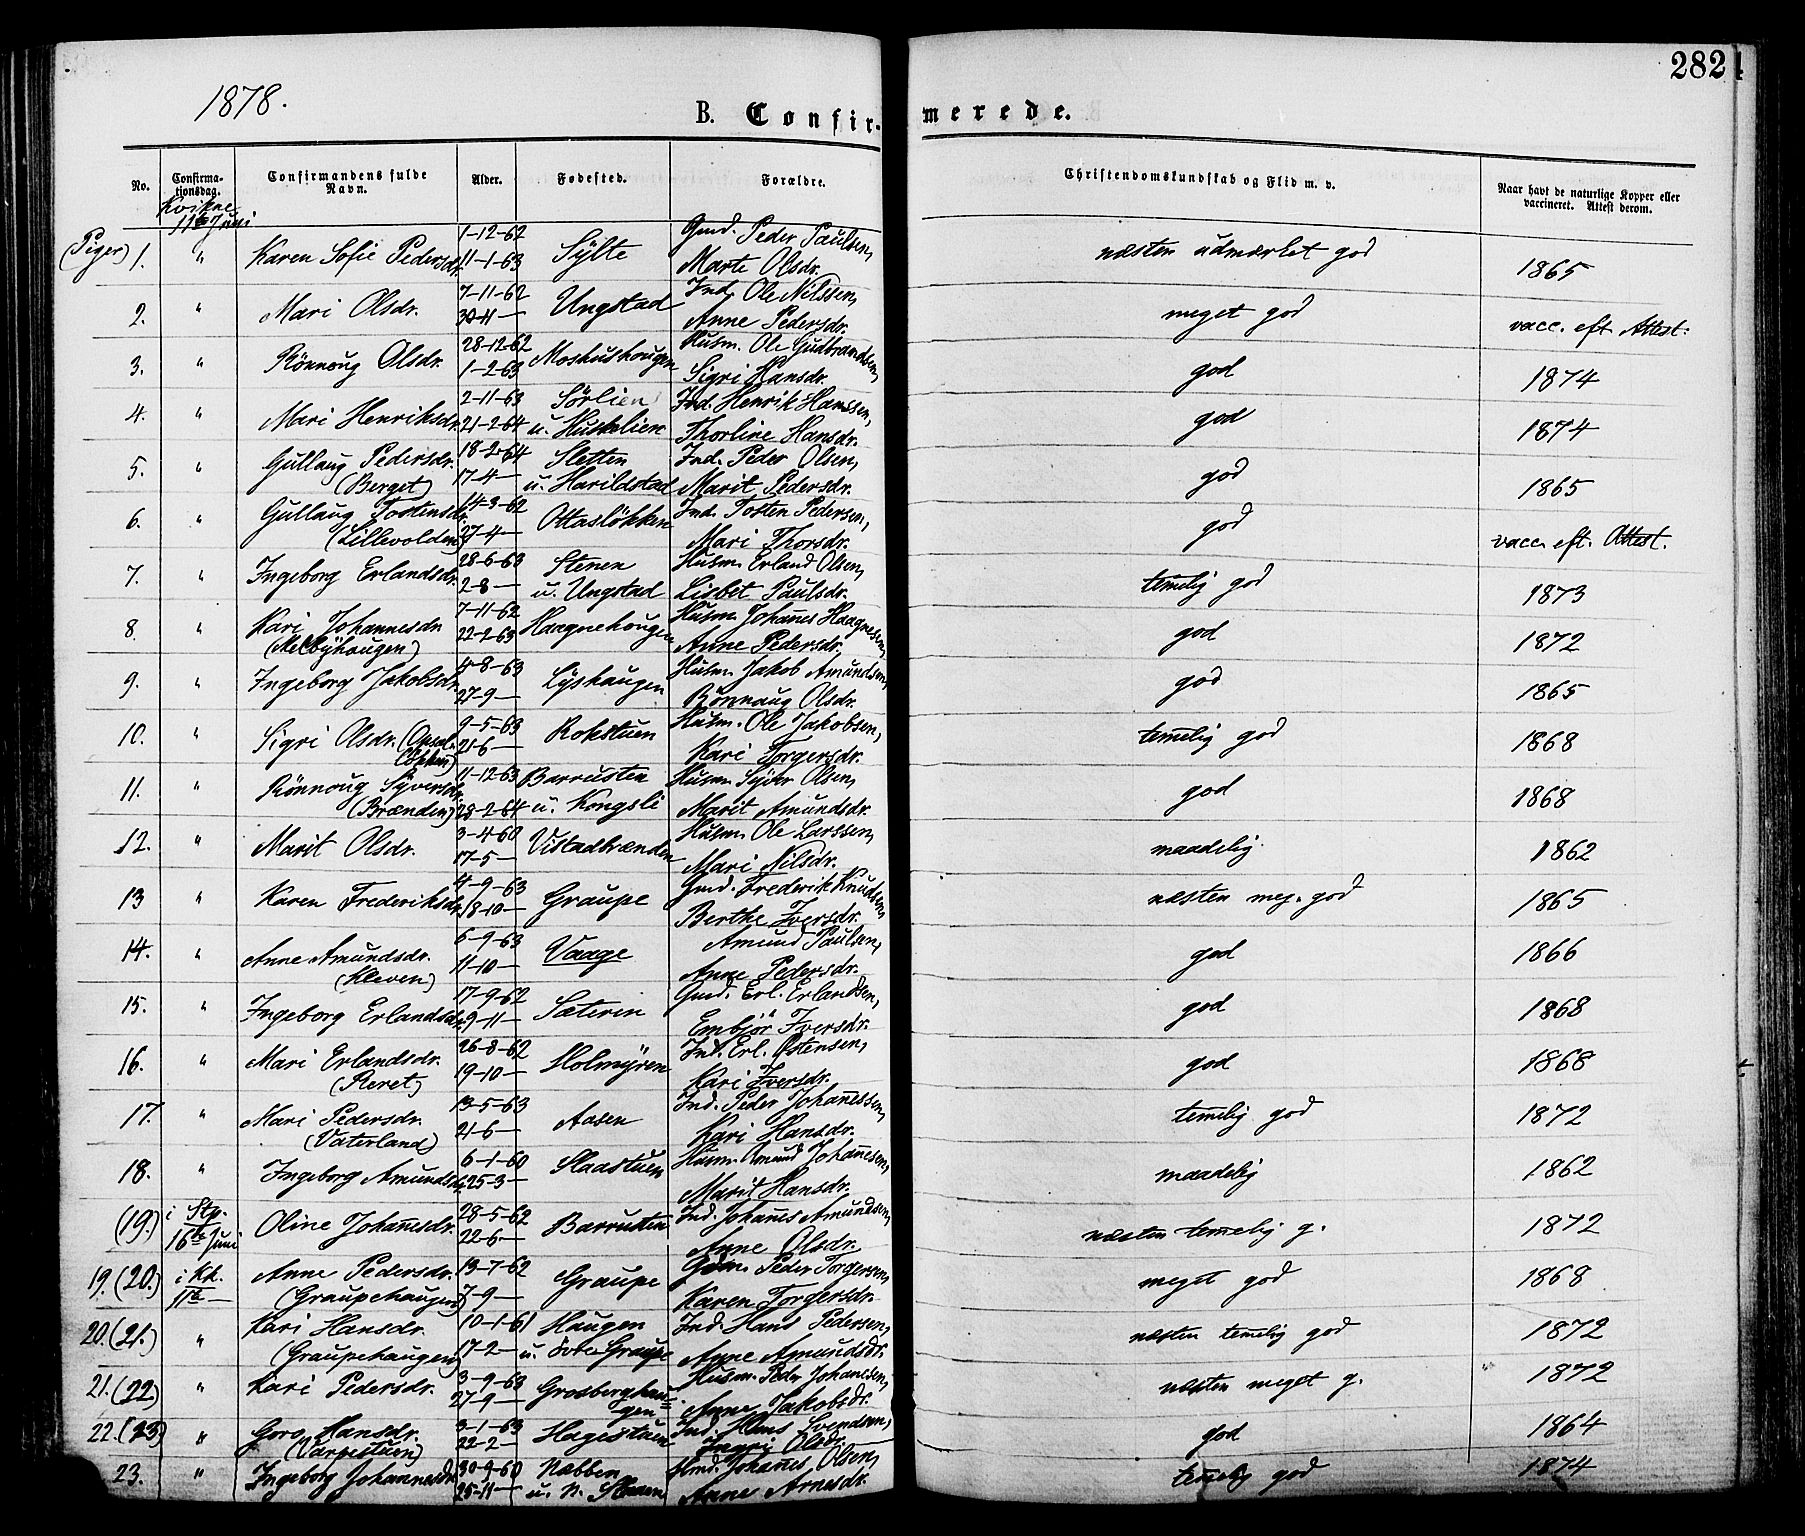 282
1878.
B. Confirmerede.
No. Confirmationsdag. Confirmandens fulde Navn. Alder. Fødested. Forældre. Christendomskundskab og Flid m. v. Naar havt de naturlige Kopper eller vaccineret. Attest derom.
Kvikne
11te Juni
(Piger) 1. " Karen Sofie Pedersdr. 1-12-62 11-1-63 Sylte Gmd. Peder Paulsen, Marte Olsdr. næsten udmærket god 1865
2. " Mari Olsdr. 7-11-62 30-11- Ungstad Ind. Ole Nilssen, Anne Pedersdr. meget god vacc. eft. Attest.
3. " Rönnoug Olsdr. 28-12-62 1-2-63 Moshushougen Husm. Ole Gudbrandsen, Sigri Hansdr. god 1874
4. " Mari Henriksdr. 2-11-63 21-2-64 Sørlien u. Huskelien Ind. Henrik Hanssen, Thorline Hansdr. god 1874
5. " Gullaug Pedersdr. (Berget) 18-2-64 17-4- Sletten u. Harildstad Ind. Peder Olsen, Marit Pedersdr. god 1865
6. " Gullaug Tostensdr. (Lillevolden) 14-3-62 27-4- Ottasløkken Ind. Tosten Pedersen, Mari Thorsdr. god vacc. eft. Attest.
7. " Ingeborg Erlandsdr. 28-6-63 2-8- Stenen u. Ungstad Husm. Erland Olsen, Lisbet Paulsdr. temelig god 1873
8. " Kari Johannesdr. (Melbyhougen) 7-11-62 22-2-63 Haagnehougen Husm. Johanes Haagnesen, Anne Pedersdr. god 1872
9. " Ingeborg Jakobsdr. 4-8-63 27-9- Lyshaugen Husm. Jakob Amundsen, Rønnaug Olsdr. god 1865
10. " Sigri Olsdr. 9-5-63 21-6- Rokstuen Husm. Ole Jakobsen, Kari Torgersdr. temelig god 1868
11. " Rönnoug Syversdr. (Brænden) 11-12-63 28-2-64 Barrusten u. Kongsli Husm. Syver Olsen, Marit Amundsdr. god 1868
12. " Marit Olsdr. 3-4-60 17-5- Vistadbrænden Husm. Ole Larssen, Mari Nilsdr. maadelig. 1862
13 " Karen Frederiksdr. 4-9-63 18-10- Graupe Gmd. Frederik Knudsen, Berthe Iversdr. næsten meg. god 1865
14. " Anne Amundsdr. (Kleven) 6-9-63 11-10- Vaage Amund Paulsen, Anne Pedersdr. god 1866
15. " Ingeborg Erlandsdr. 17-9-62 9-11- Sæterin Gmd. Erl. Erlandsen, Embjør Iversdr. god 1868
16. " Mari Erlandsdr. 26-8-62 19-10- Holmyren Ind. Erl. Ostensen, Kari Iversdr. god 1868
17. " Mari Pedersdr. (Vaterland) 13-5-63 21-6- Aasen Ind. Peder Johanessen, Kari Hansdr. temelig god 1872
18. " Ingeborg Amundsdr. 6-1-60 25-3- Slaastuen Husm. Amund Johanesen, Marit Hansdr. maadelig 1862
(19.) i Stp. 16te Juni Oline Johanesdr. 28-5-62 22-6- Barrusten Ind. Johanes Amundsen, Anne Olsdr. næsten temelig g. 1872
19. (20.) i Kk. 11te - Anne Pedersdr. (Graupehaugen) 13-7-62 7-9- Graupe Gdm. Peder Torgersen, Karen Torgersdr. meget god 1868
20. (21.) " Kari Hansdr. (Graupehaugen) 10-1-61 17-2- Haugen u. Graupe Ind. Hans Pedersen, Anne Amundsdr. næsten temelig god 1872
21. (22) " Kari Pedersdr. 3-9-63 27-9- Grosberghaugen Husm. Peder Johanesen, Anne Jakobsdr. næsten meget g. 1872
22. (23) " Goro Hansdr. (Varpestuen) 3-1-63 22-2- Hagestuen Ind. Hans Svendsen, Ingri Olsdr. god 1864
23. " Ingeborg Johannesdr. 30-9-60 25-11- Nabben u. N. Johanes Olsen, Anne Arnesdr. temelig god 1874